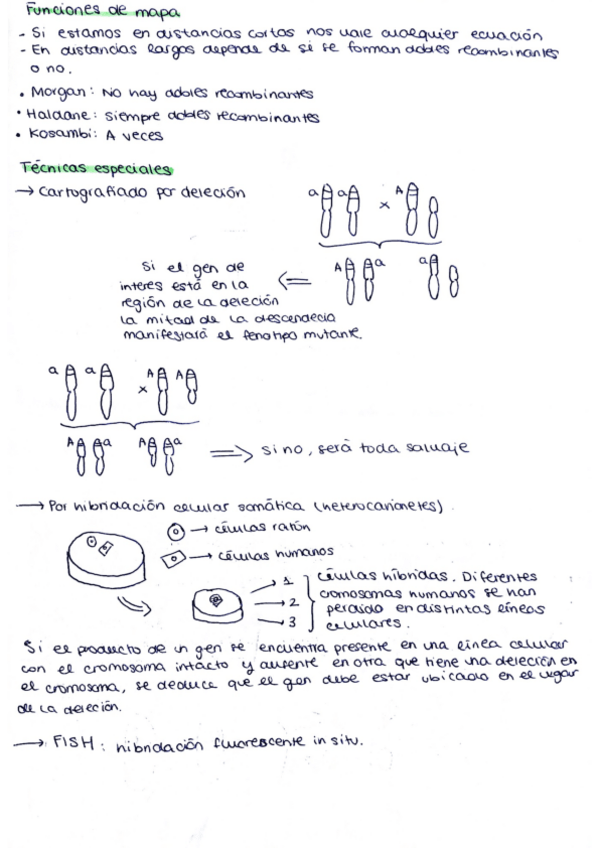 Funciones de mapa
- Si estamos en distancias cortas nos vale cualquier ecuación
- En distancias largas depende de si se forman dobles recombinantes
o no.
• Morgan: No hay dobles recombinantes
• Haldane: siempre dobles recombinantes
• Kosambi: A veces
Técnicas especiales
→ Cartografiado por deleción
a a x A
Si el gen de
interés está en la
región de la deleción
la mitad de la descendecia
manifestará el fenotipo mutante.
⇐ A a a
a a x A A
A a A a ⇒ si no, será toda salvaje
→ Por hibridación celular somática (heterocarionetes).
→ células ratón
→ células humanos
1
2
3
células híbridas. Diferentes
cromosomas humanos se han
perdido en distintas líneas
celulares.
Si el producto de un gen se encuentra presente en una línea celular
con el cromosoma intacto y ausente en otra que tiene una deleción en
el cromosoma, se deduce que el gen debe estar ubicado en el lugar
de la deleción.
→ FISH: hibridación fluorescente in situ.